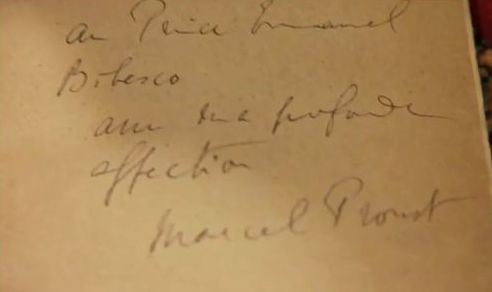 au Prince Emanuel
Bibesco
avec ma profonde
affection
Marcel Proust